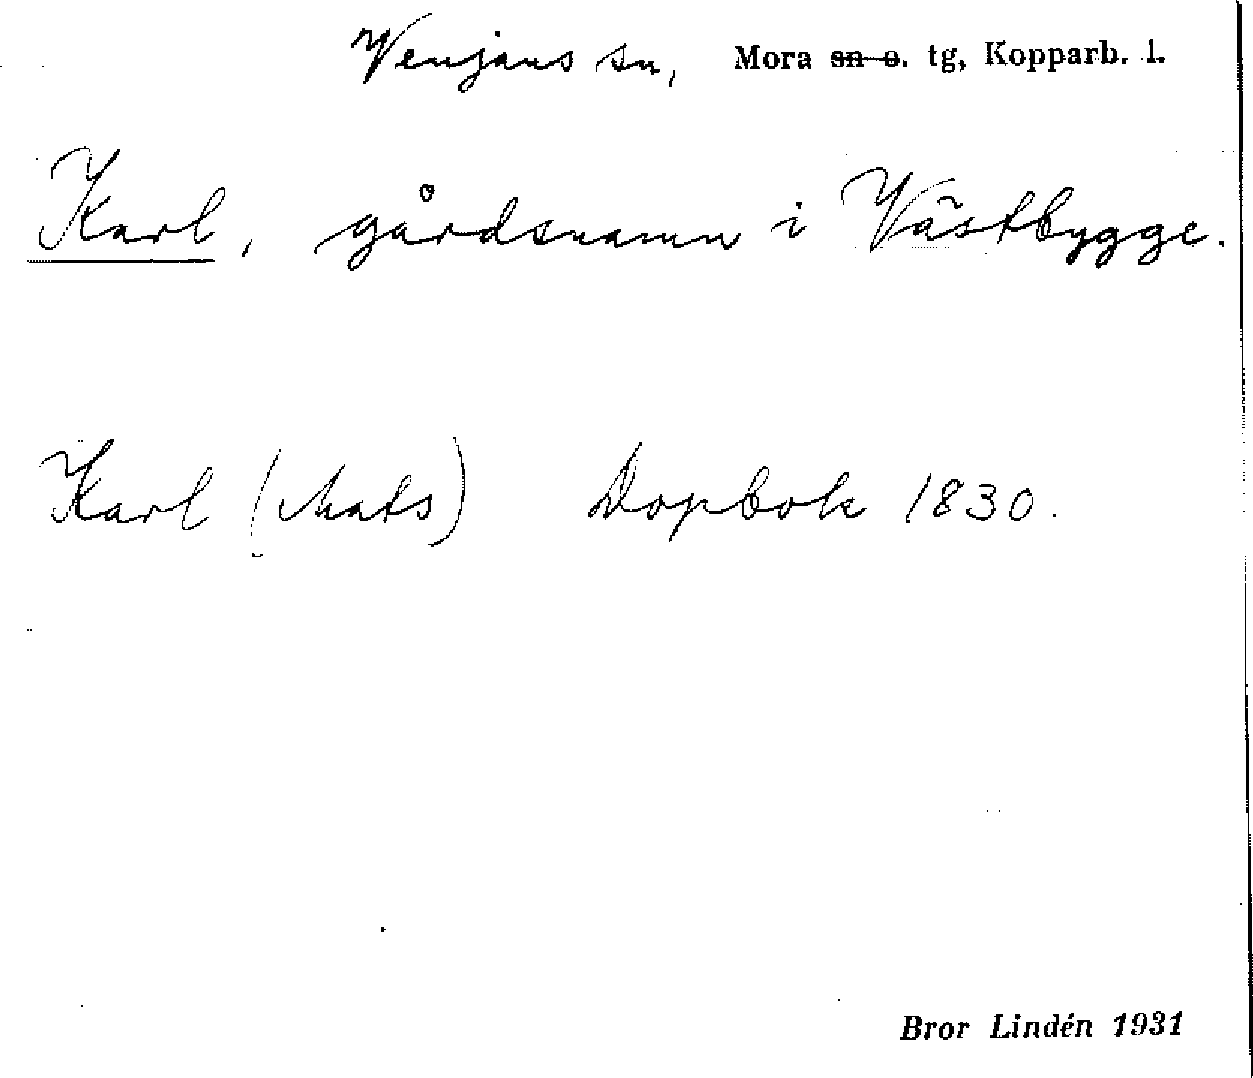 Venjans sn, Mora sn o. tg, Kopparb. l.
Karl, gårdsnamn i Västbygge.
Karl (Mats) Dopbok 1830.
Bror Lindén 1931